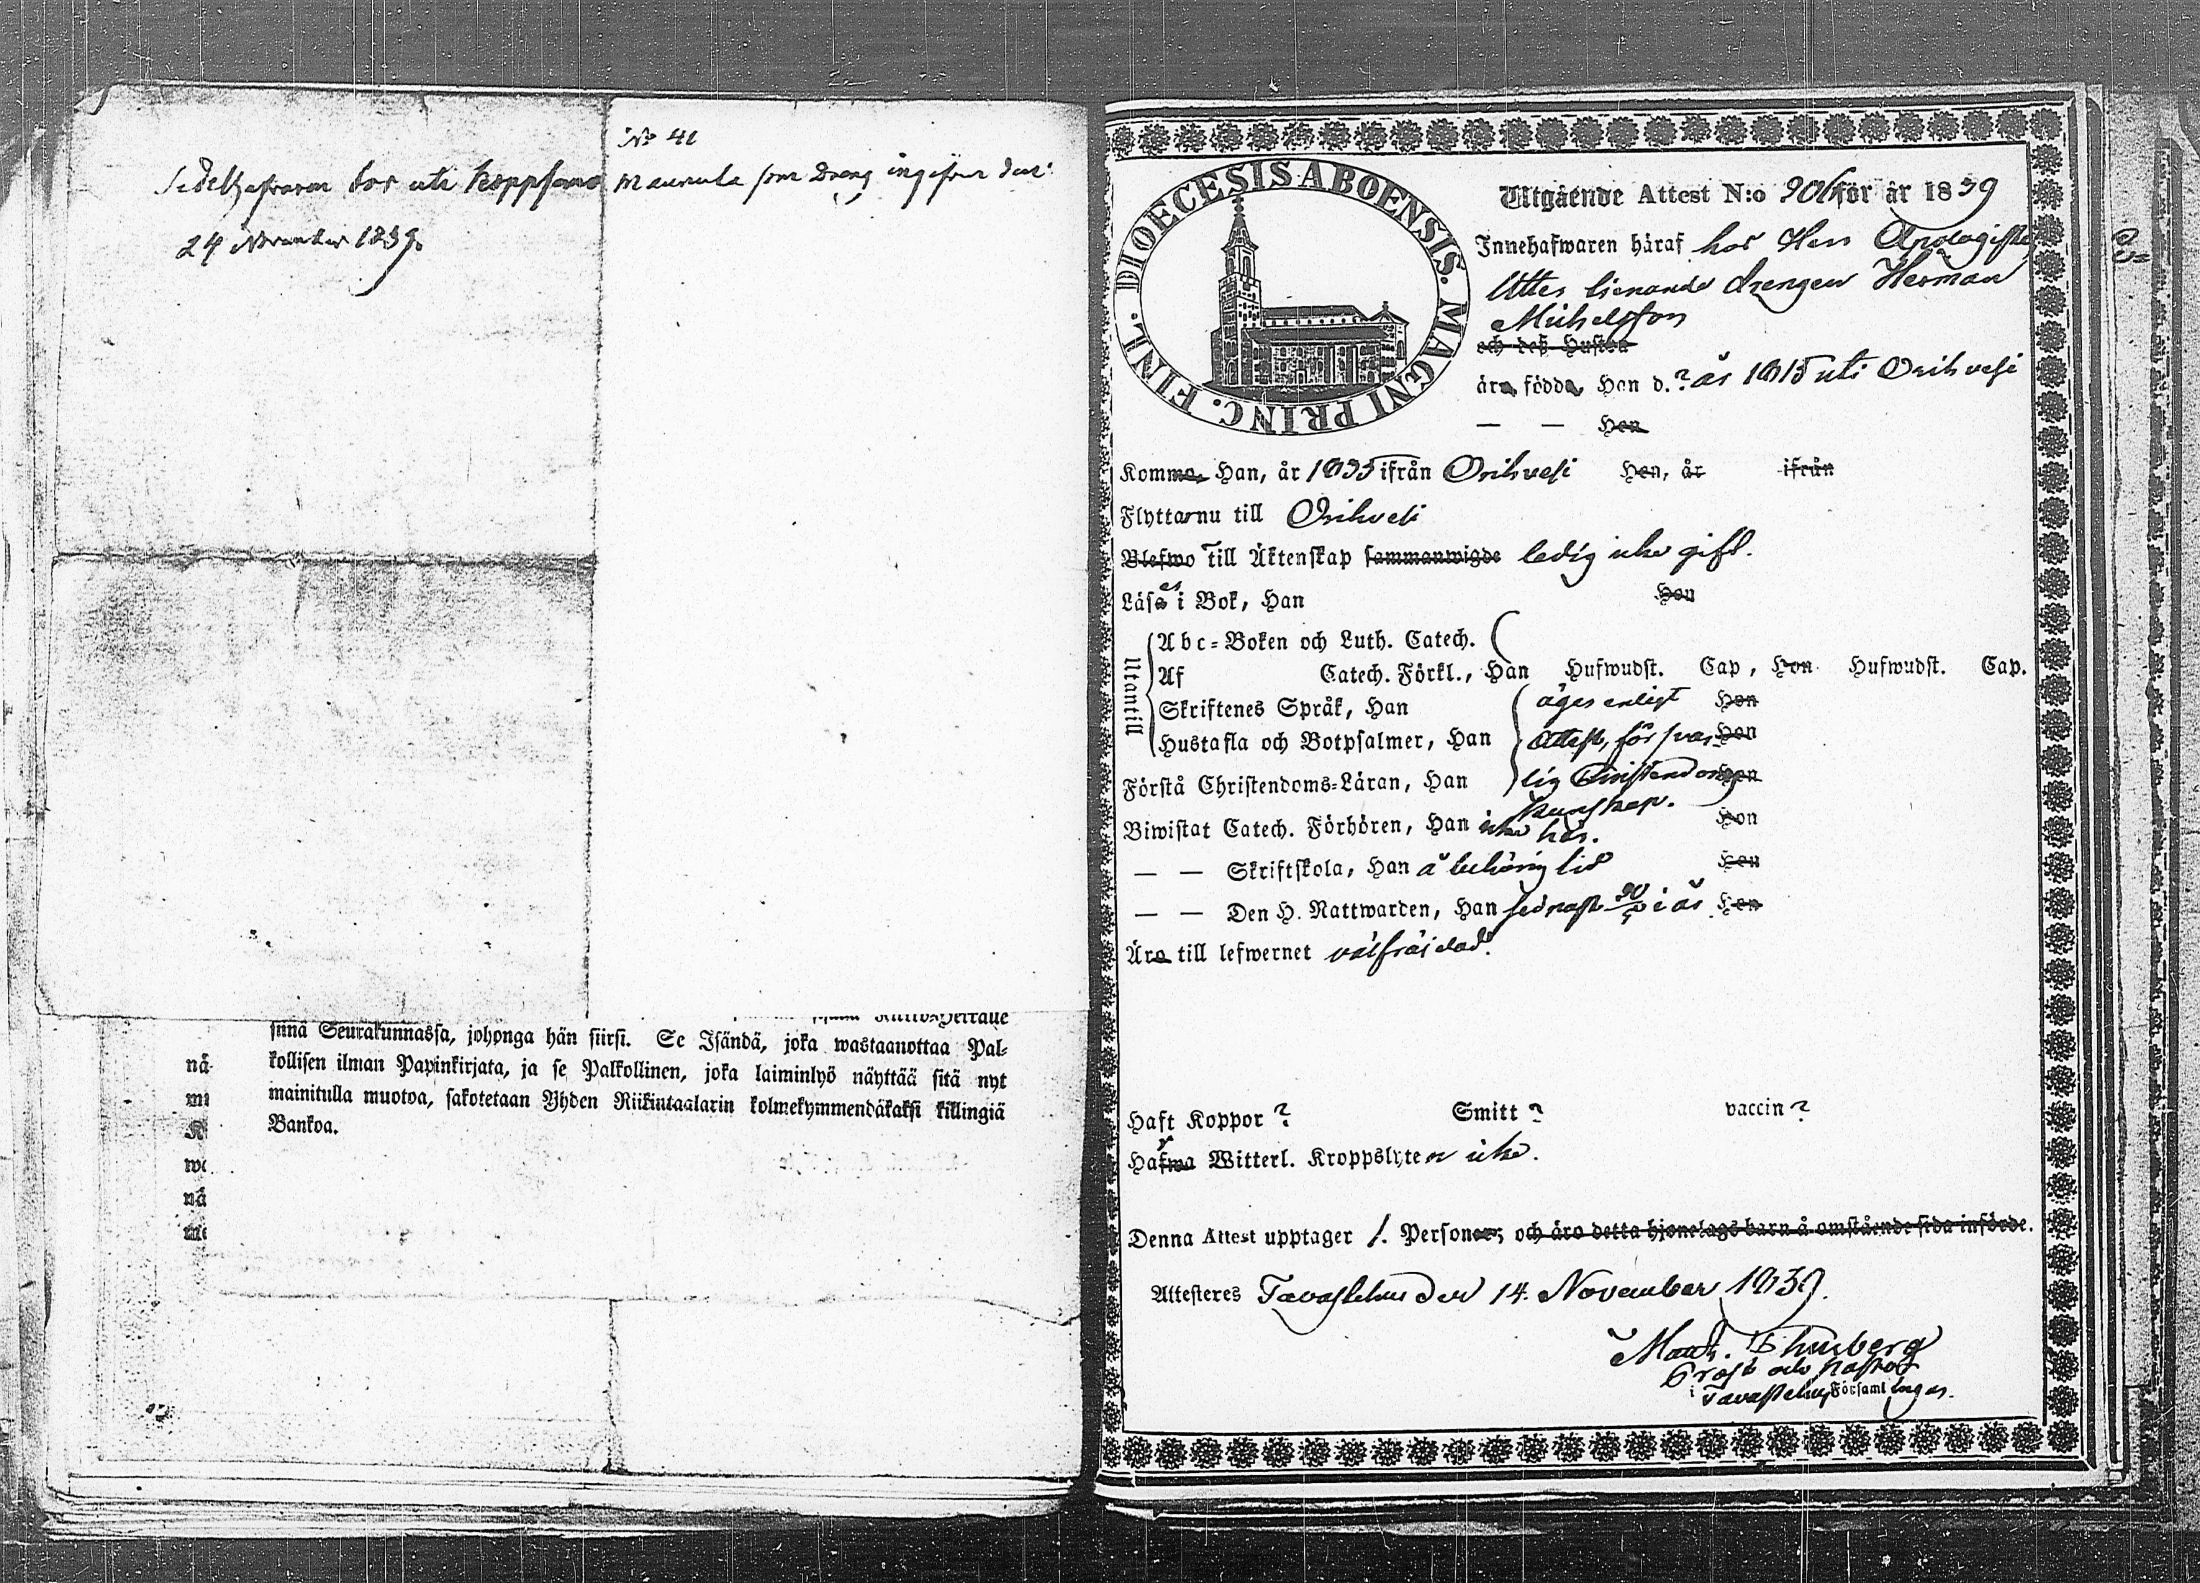 No 41
Sedelhafvaren bor uti Koppsamo Maunula som Dreng ingifvir den
24 November 1839.
sinä Seurakunnassa, johonga hän siirsi. Se Isändä, joka wastaanottaa Pal-
kollisen ilman Papinkirjata, ja se Palkollinen, joka laiminlyö näyttää sitä nyt
mainitulla muotoa, sakotetaan Yhden Riikintaalarin kolmekymmendäkaksi killingiä
Bankoa.
nä
DIOECESIS ABOENSIS. MAGNI PRINC. FINL.
Utgående Attest N:o 206 för år 1839
Innehafwaren häraf hos Herr Apologisten
Utter tienande drengen Herman
Michelsson
och deß Hustru
äro födda, Han d. ? år 1815 uti Orihvesi
— — Hon
Komme, Han, år 1835 ifrån Orihvesi Hon, år ifrån
Flyttar nu till Orihvesi
Blefwo till Äktenskap sammanwigde ledig icke gift.
Läser i Bok, Han Hon
Utantill
Abc-Boken och Luth. Catech.
Af Catech. Förkl., Han Hufwudst. Cap, Hon Hufwudst. Cap.
Skriftenes Språk, Han äges enligt Hon
Hustafla och Botpsalmer, Han Attest, försvar- Hon
Förstå Christendoms-Läran, Han lig Christendoms Hon
kunskap.
Biwistat Catech. Förhören, Han icke här. Hon
— — Skriftskola, Han å behörig tid Hon
— — Den H. Nattwarden, Han sednast i år Hon
Äro till lefwernet välfräjdad.
Haft Koppor ? Smitt ? vaccin ?
Hafwa Witterl. Kroppslyten icke.
Denna Attest upptager 1. Personer; och äro detta hjonelags barn å omstående sida införde.
Attesteres Tavastehus den 14. November 1839.
Math. Thunberg
Prost och Pastor
i Tavastehus Församlingar.